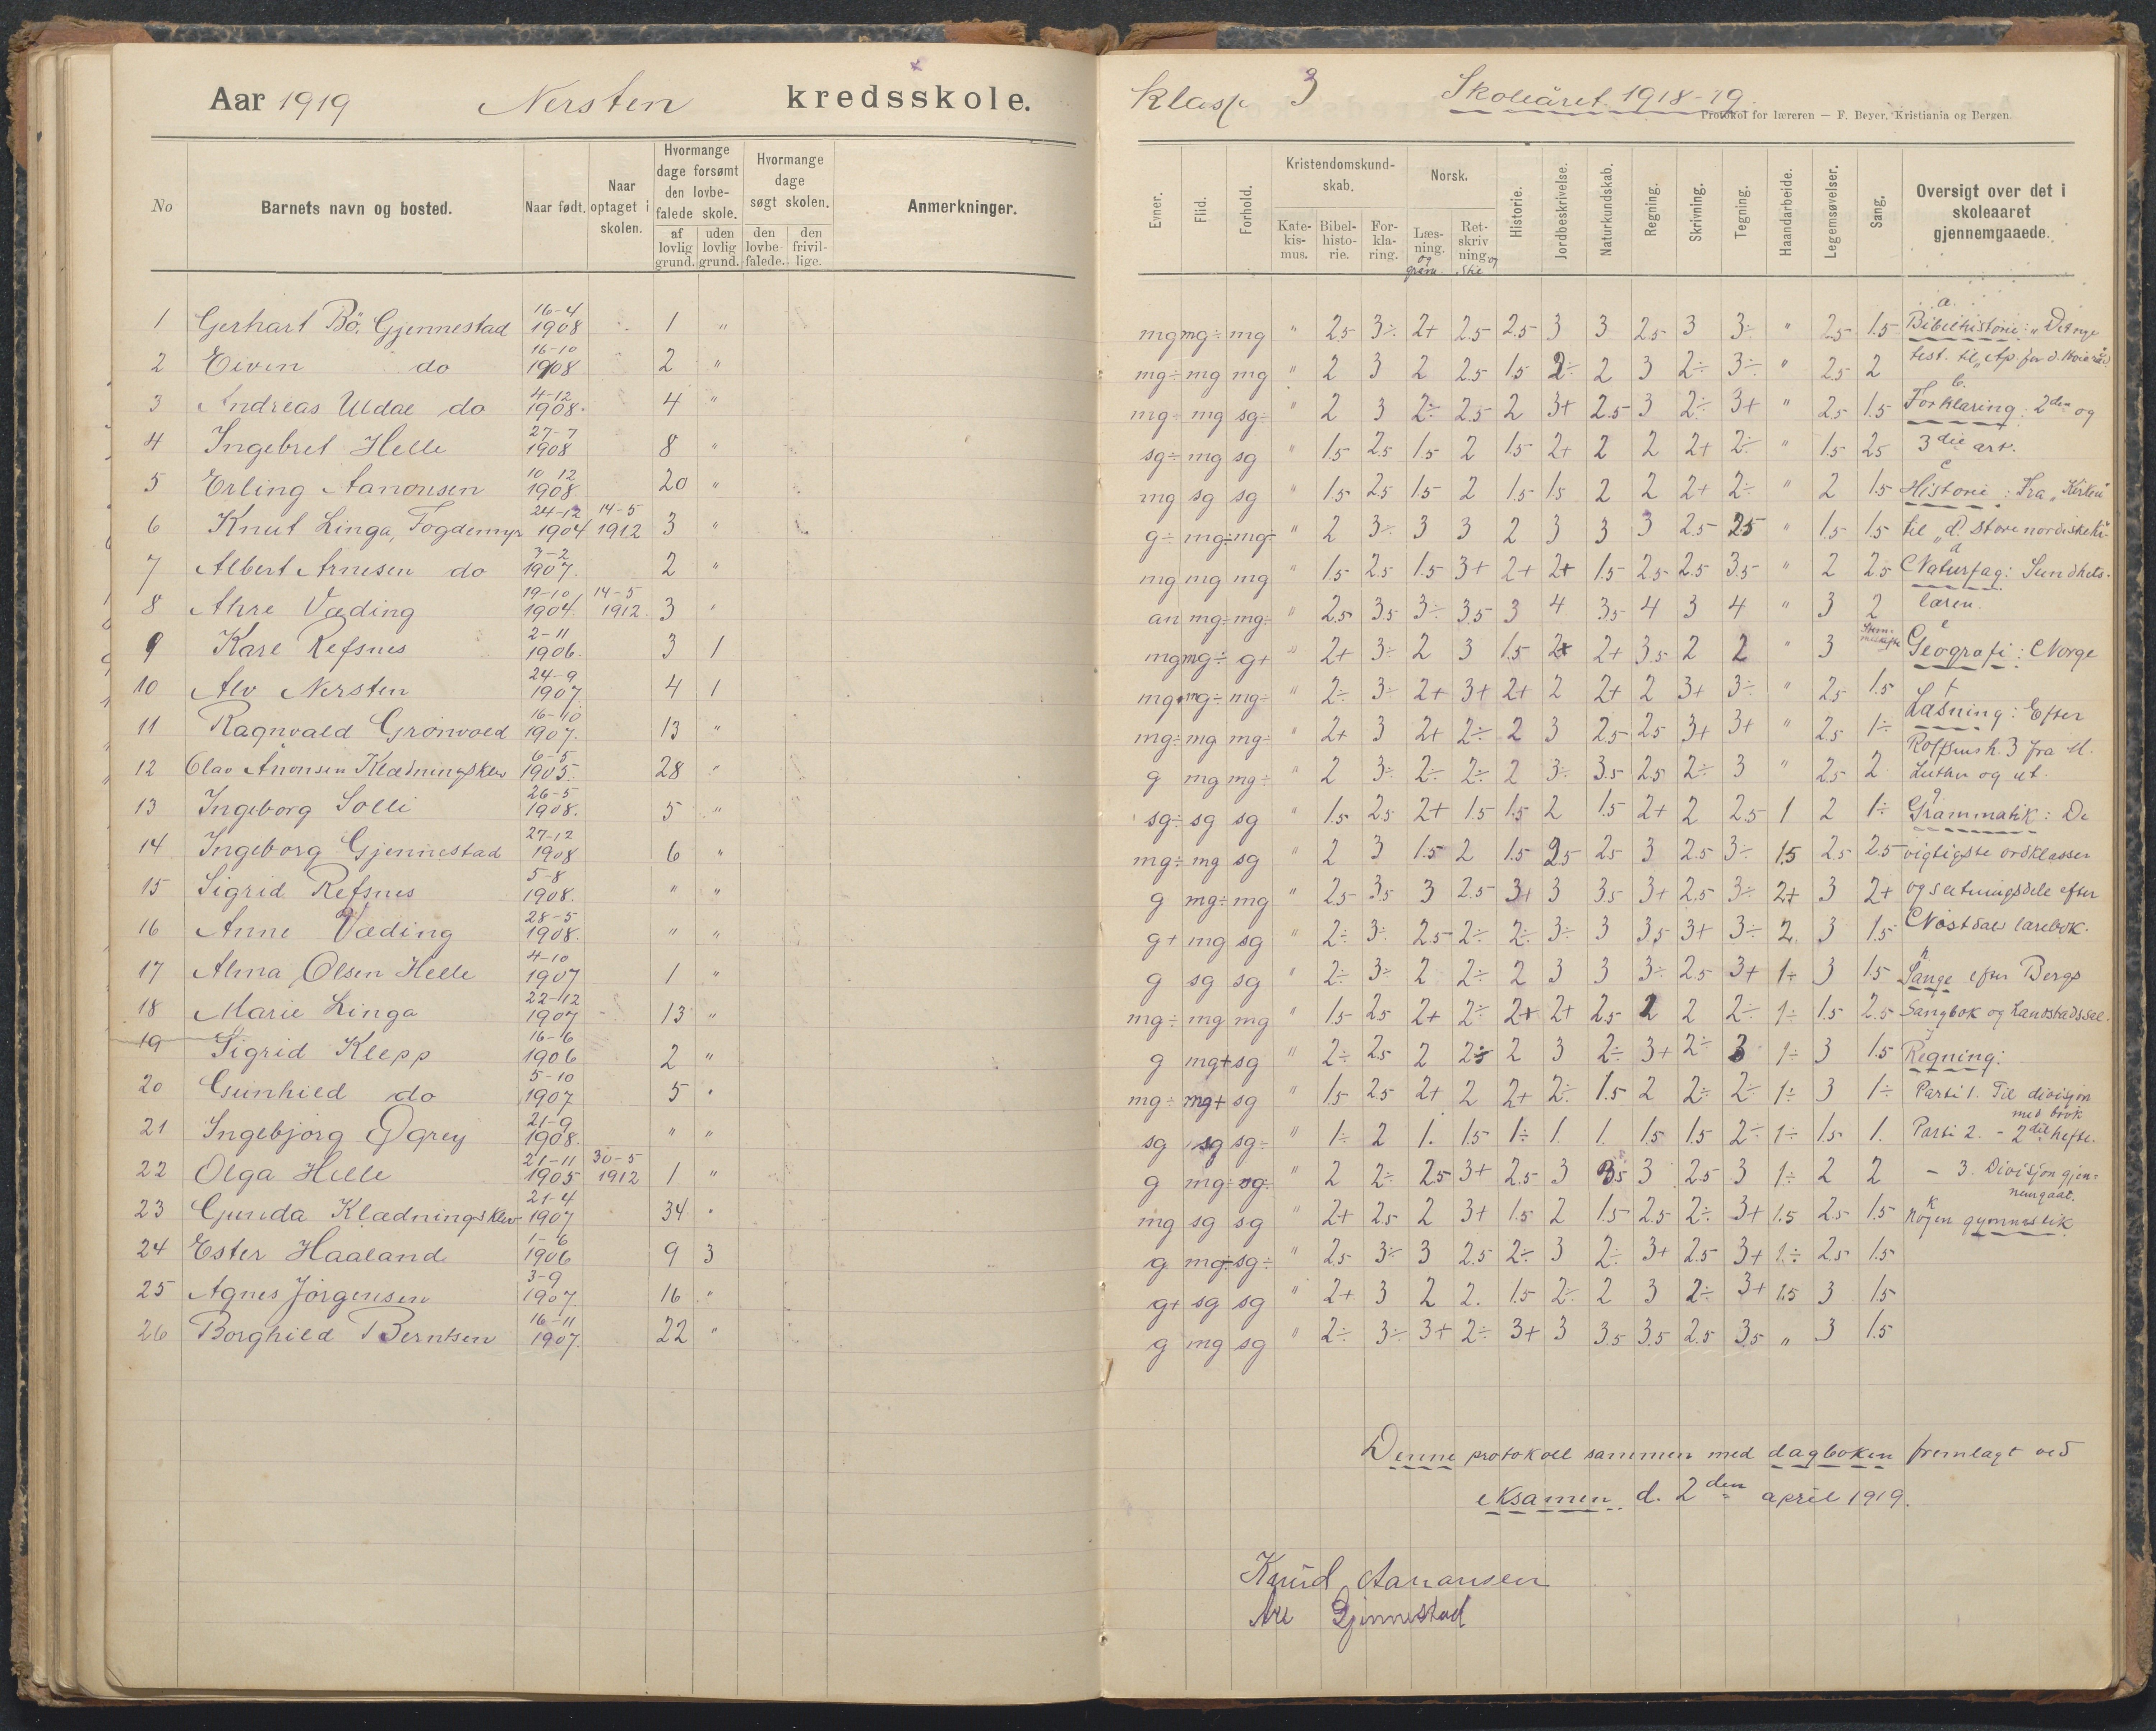 Aar 1919 Nersten kredsskole.
No Barnets navn og bosted. Naar født. Naar optaget i skolen. Hvormange dage forsømt den lovbefalede skole. af lovlig grund. uden lovlig grund. Hvormange dage søgt skolen. den lovbefalede. den frivillige. Anmerkninger.
1 Gerhart Bö, Gjennestad 16-4 1908 1 "
2 Eivin do 16-10 1908 2 "
3 Andreas Uldal do 4-12 1908. 4 "
4 Ingebret Helle 27-7 1908 8 "
5 Erling Aanonsen 10 12 1908. 20 "
6 Knut Linga, Fogdemyr 24-12 1904 14-5 1912 3 "
7 Albert Arnesen do 3-2 1907. 2 "
8 Ahre Væding 19-10 1904. 14-5 1912. 3 "
9 Kare Refsnes 2-11 1906. 3 1
10 Alv Nersten 24-9 1907 4 1
11 Ragnvald Grönvold 16-10 1907. 13 "
12 Olav Ånonsen Klædningsklev 6-5 1905. 28 "
13 Ingeborg Solli 26-5 1908. 5 "
14 Ingeborg Gjennestad 27-12 1908 6 "
15 Sigrid Refsnes 5-8 1908. " "
16 Anne Væding 28-5 1908. " "
17 Alma Olsen Helle 4-10 1907 1 "
18 Marie Linga 22-12 1907 13 "
19 Sigrid Klepp 16-6 1906 2 "
20 Gunhild do 5-10 1907 5 "
21 Ingebjörg Ögrey 21-9 1908. " "
22 Olga Helle 21-11 1905 30-5 1912 1 "
23 Gunda Klædningsklev 21-4 1907 34 "
24 Ester Haaland 1-6 1906 9 3
25 Agnes Jörgensen 3-9 1907. 16 "
26 Borghild Berntsen 16-11 1907. 22 "
klasse 3 Skoleåret 1918-19.
Protokol for læreren — F. Beyer, Kristiania og Bergen.
Evner. Flid. Forhold. Kristendomskundskab. Katekismus. Bibelhistorie. Forklaring. Norsk. Læsning. og gram. Retskrivning og Stil Historie. Jordbeskrivelse. Naturkundskab. Regning. Skrivning. Tegning. Haandarbeide. Legemsøvelser. Sang. Oversigt over det i skoleaaret gjennemgaaede.
mg mg÷ mg " 2.5 3÷ 2+ 2.5 2.5 3 3 2.5 3 3÷ " 2.5 1.5
mg÷ mg mg " 2 3 2 2.5 1.5 2÷ 2 3 2÷ 3÷ " 2.5 2
mg÷ mg sg÷ " 2 3 2÷ 2.5 2 3+ 2.5 3 2÷ 3+ " 2.5 1.5
sg÷ mg sg " 1.5 2.5 1.5 2 1.5 2+ 2 2 2+ 2÷ " 1.5 2.5
mg sg sg " 1.5 2.5 1.5 2 1.5 1.5 2 2 2+ 2÷ " 2 1.5
g÷ mg÷ mg÷ " 2 3÷ 3 3 2 3 3 3 2.5 2.5 " 1.5 1.5
mg mg mg " 1.5 2.5 1.5 3+ 2+ 2+ 1.5 2.5 2.5 3.5 " 2 2.5
an mg÷ mg÷ " 2.5 3.5 3÷ 3.5 3 4 3.5 4 3 4 " 3 2
mg mg÷ g+ " 2+ 3÷ 2 3 1.5 2+ 2+ 3.5 2 2 " 3
mg mg÷ mg÷ " 2÷ 3÷ 2+ 3+ 2+ 2 2+ 2 3+ 3÷ " 2.5 1.5
mg÷ mg mg÷ " 2+ 3 2+ 2÷ 2 3 2.5 2.5 3+ 3+ " 2.5 1÷
g mg mg÷ " 2 3÷ 2÷ 2÷ 2 3÷ 3.5 2.5 2÷ 3 " 2.5 2
sg÷ sg sg " 1.5 2.5 2+ 1.5 1.5 2 1.5 2+ 2 2.5 1 2 1÷
mg÷ mg sg " 2 3 1.5 2 1.5 2.5 2.5 3 2.5 3÷ 1.5 2.5 2.5
g mg÷ mg " 2.5 3.5 3 2.5 3+ 3 3.5 3+ 2.5 3÷ 2+ 3 2+
g+ mg sg " 2÷ 3÷ 2.5 2÷ 2÷ 3÷ 3 3.5 3+ 3÷ 2. 3 1.5
g sg sg " 2÷ 3÷ 2 2÷ 2 3 3 3÷ 2.5 3+ 1÷ 3 1.5
mg÷ mg mg " 1.5 2.5 2+ 2÷ 2+ 2+ 2.5 2 2 2÷ 1÷ 1.5 2.5
g mg+ sg " 2÷ 2.5 2 2÷ 2 3 2÷ 3+ 2÷ 3 1÷ 3 1.5
mg÷ mg+ sg " 1.5 2.5 2+ 2 2+ 2÷ 1.5 2 2÷ 2÷ 1÷ 3 1÷
sg sg sg÷ " 1÷ 2 1. 1.5 1÷ 1. 1. 1.5 1.5 2÷ 1÷ 1.5 1.
g mg÷ mg÷ " 2 2÷ 2.5 3+ 2.5 3 3.5 3 2.5 3 1÷ 2 2
mg sg sg " 2+ 2.5 2 3+ 1.5 2 1.5 2.5 2÷ 3+ 1.5 2.5 1.5
g mg÷ sg÷ " 2.5 3÷ 3 2.5 2÷ 3 2÷ 3+ 2.5 3+ 1÷ 2.5 1.5
g+ sg sg " 2+ 3 2 2. 1.5 2÷ 2 3 2÷ 3+ 1.5 3 1.5
g mg sg " 2÷ 3÷ 3+ 2÷ 3+ 3 3.5 3.5 2.5 3.5 " 3 1.5
a.
Bibelhistorie: "Det nye
test. til
b.
Forklaring: 2den og
3die art.
c
Historie: Fra "Kirken"
til "d. store nordiske kr."
d
Naturfag: Sundhets-
læren.
e
Geografi: Norge
f
Læsning: Efter
Rolfsens h. 3 fra M.
Luther og ut.
g
Grammatik: De
vigtigste ordklasser
og sætningsdele efter
Nöstdals lærebok.
h
Sange efter Bergs
Sangbok og Landstads sal.
j
Regning:
Parti 1. Til divisjon
med brök
Parti 2. - 2det hefte.
- 3. Divisjon gjen-
nemgaat.
k
Nogen gymnastik
Denne protokoll sammen med dagboken fremlagt ved
eksamen d. 2den april 1919.
Knud Aanansen
Are Gjennestad